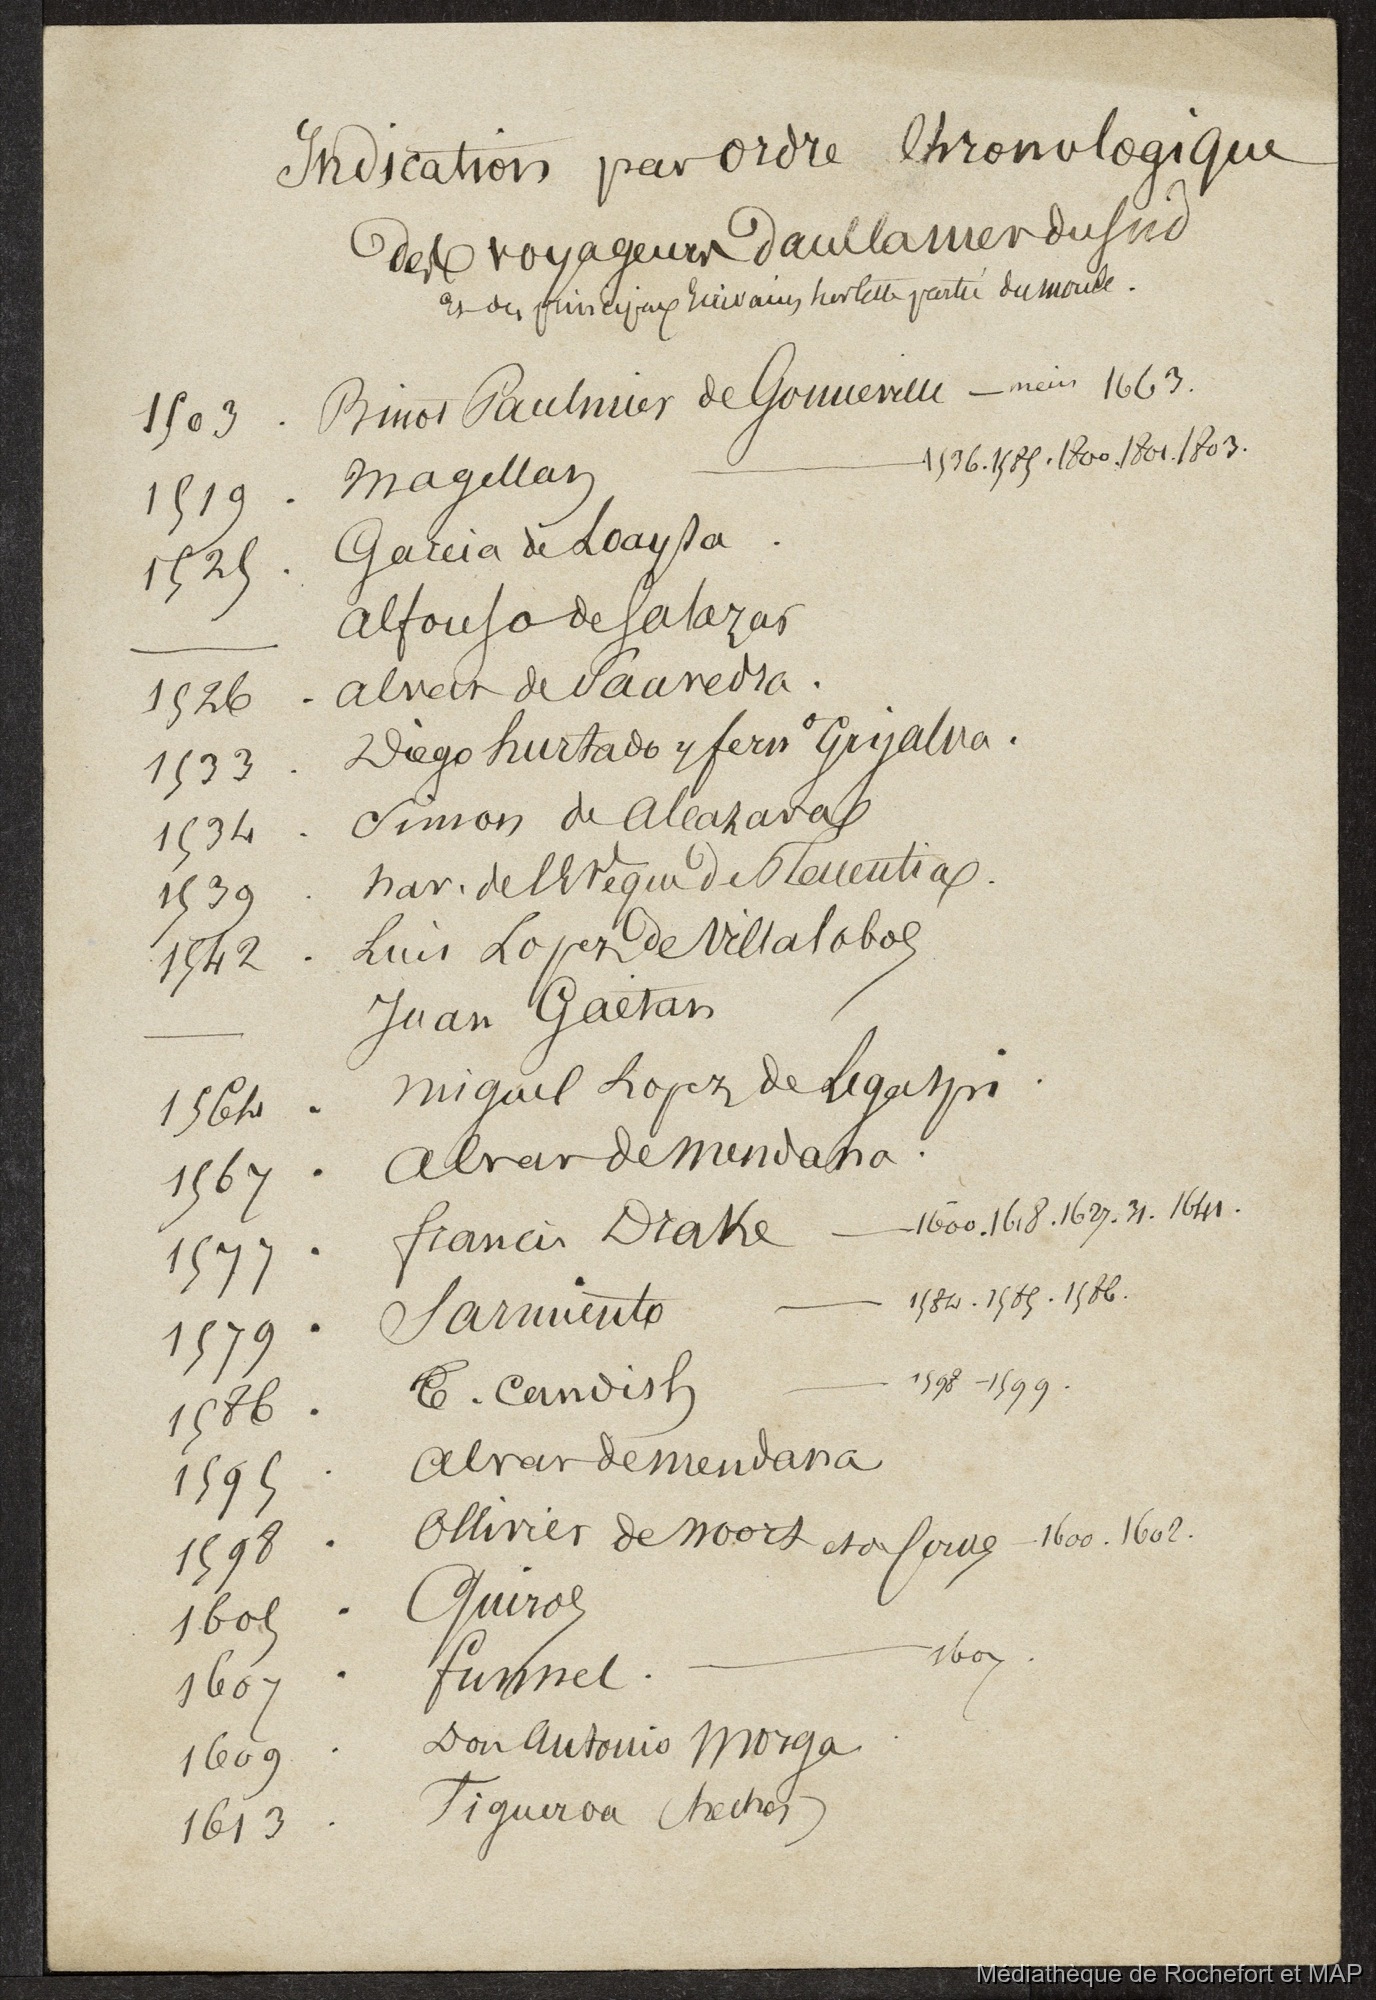 Indication par ordre Chronologique
des voyageurs Dans la mer du Sud
Et des principaux Ecrivains sur cette partie du monde.
1503 . Binot Paulmier de Gonneville — 1663.
1519 . Magellan — 1536.1585.1800.1801.1803.
1525 . Garcia de Loaysa .
— alfonso de Salazar
1526 . alvar de Saavedra .
1533 . Diego hurtado y fernº Grijalva .
1534 . Simon de Alcazava
1539 . nav. de l'Evêque de Placentia .
1542 . Luis Lopez de Villalobos
— Juan Gaëtan
1564 . Miguel Lopez de Legaspi .
1567 . alvar de mendana .
1577 . francis Drake — 1600.1618.1627.31.1641.
1579 . Sarmiento — 1584.1585.1586.
1586 . T. Candish — 1598 - 1599.
1595 . alvar de mendana
1598 . Ollivier de Noort — 1600.1602.
1605 . Quiros
1607 . funnel . — 1607 .
1609 . Don Antonio Morga .
1613 . Figueroa (hechos)
Médiathèque de Rochefort et MAP